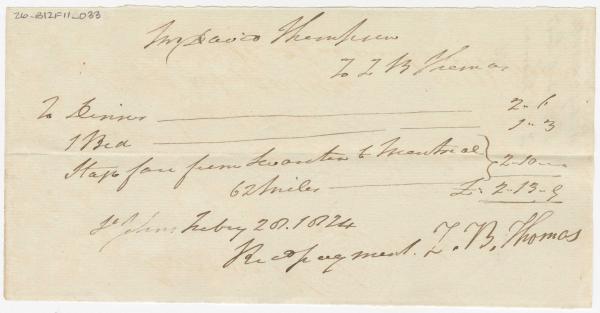 26-B12F11_033
Mr David Thompson
To Z B Thomas
To Dinner 2-6
1 Bed 1-3
Stage fare from Swanton to Montreal } 2-10-
62 Miles £ 2-13-9
St Johns Feby 28. 1824
Recd payment. Z. B. Thomas